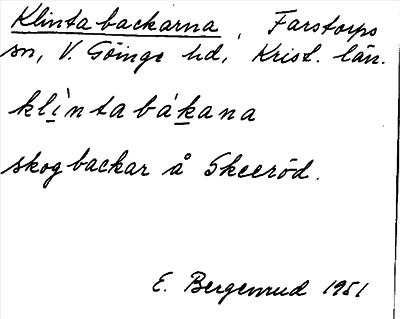 Klintabackarna, Farstorps
sn, V. Göinge hd, Krist. län.
klìntabákana
skogbackar å Skeeröd.
E. Bergenrud 1951